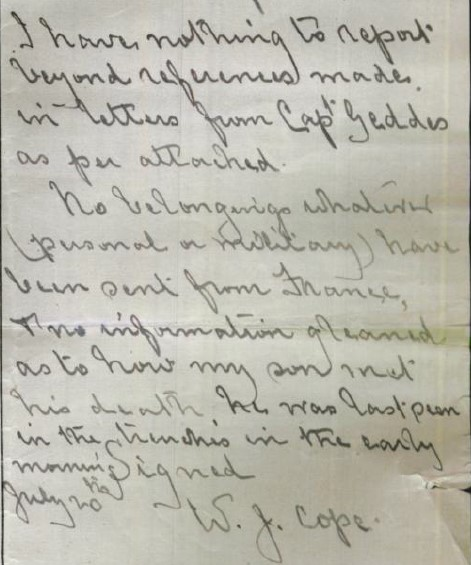 I have nothing to report
beyond references made
in letters from Capt Geddes
as per attached.
No belongings whatever
(personal or military) have
been sent from France,
& no information gleaned
as to how my son met
his death he was last seen
in the trenches in the early
morning Signed
July 20th W. J. Cope.